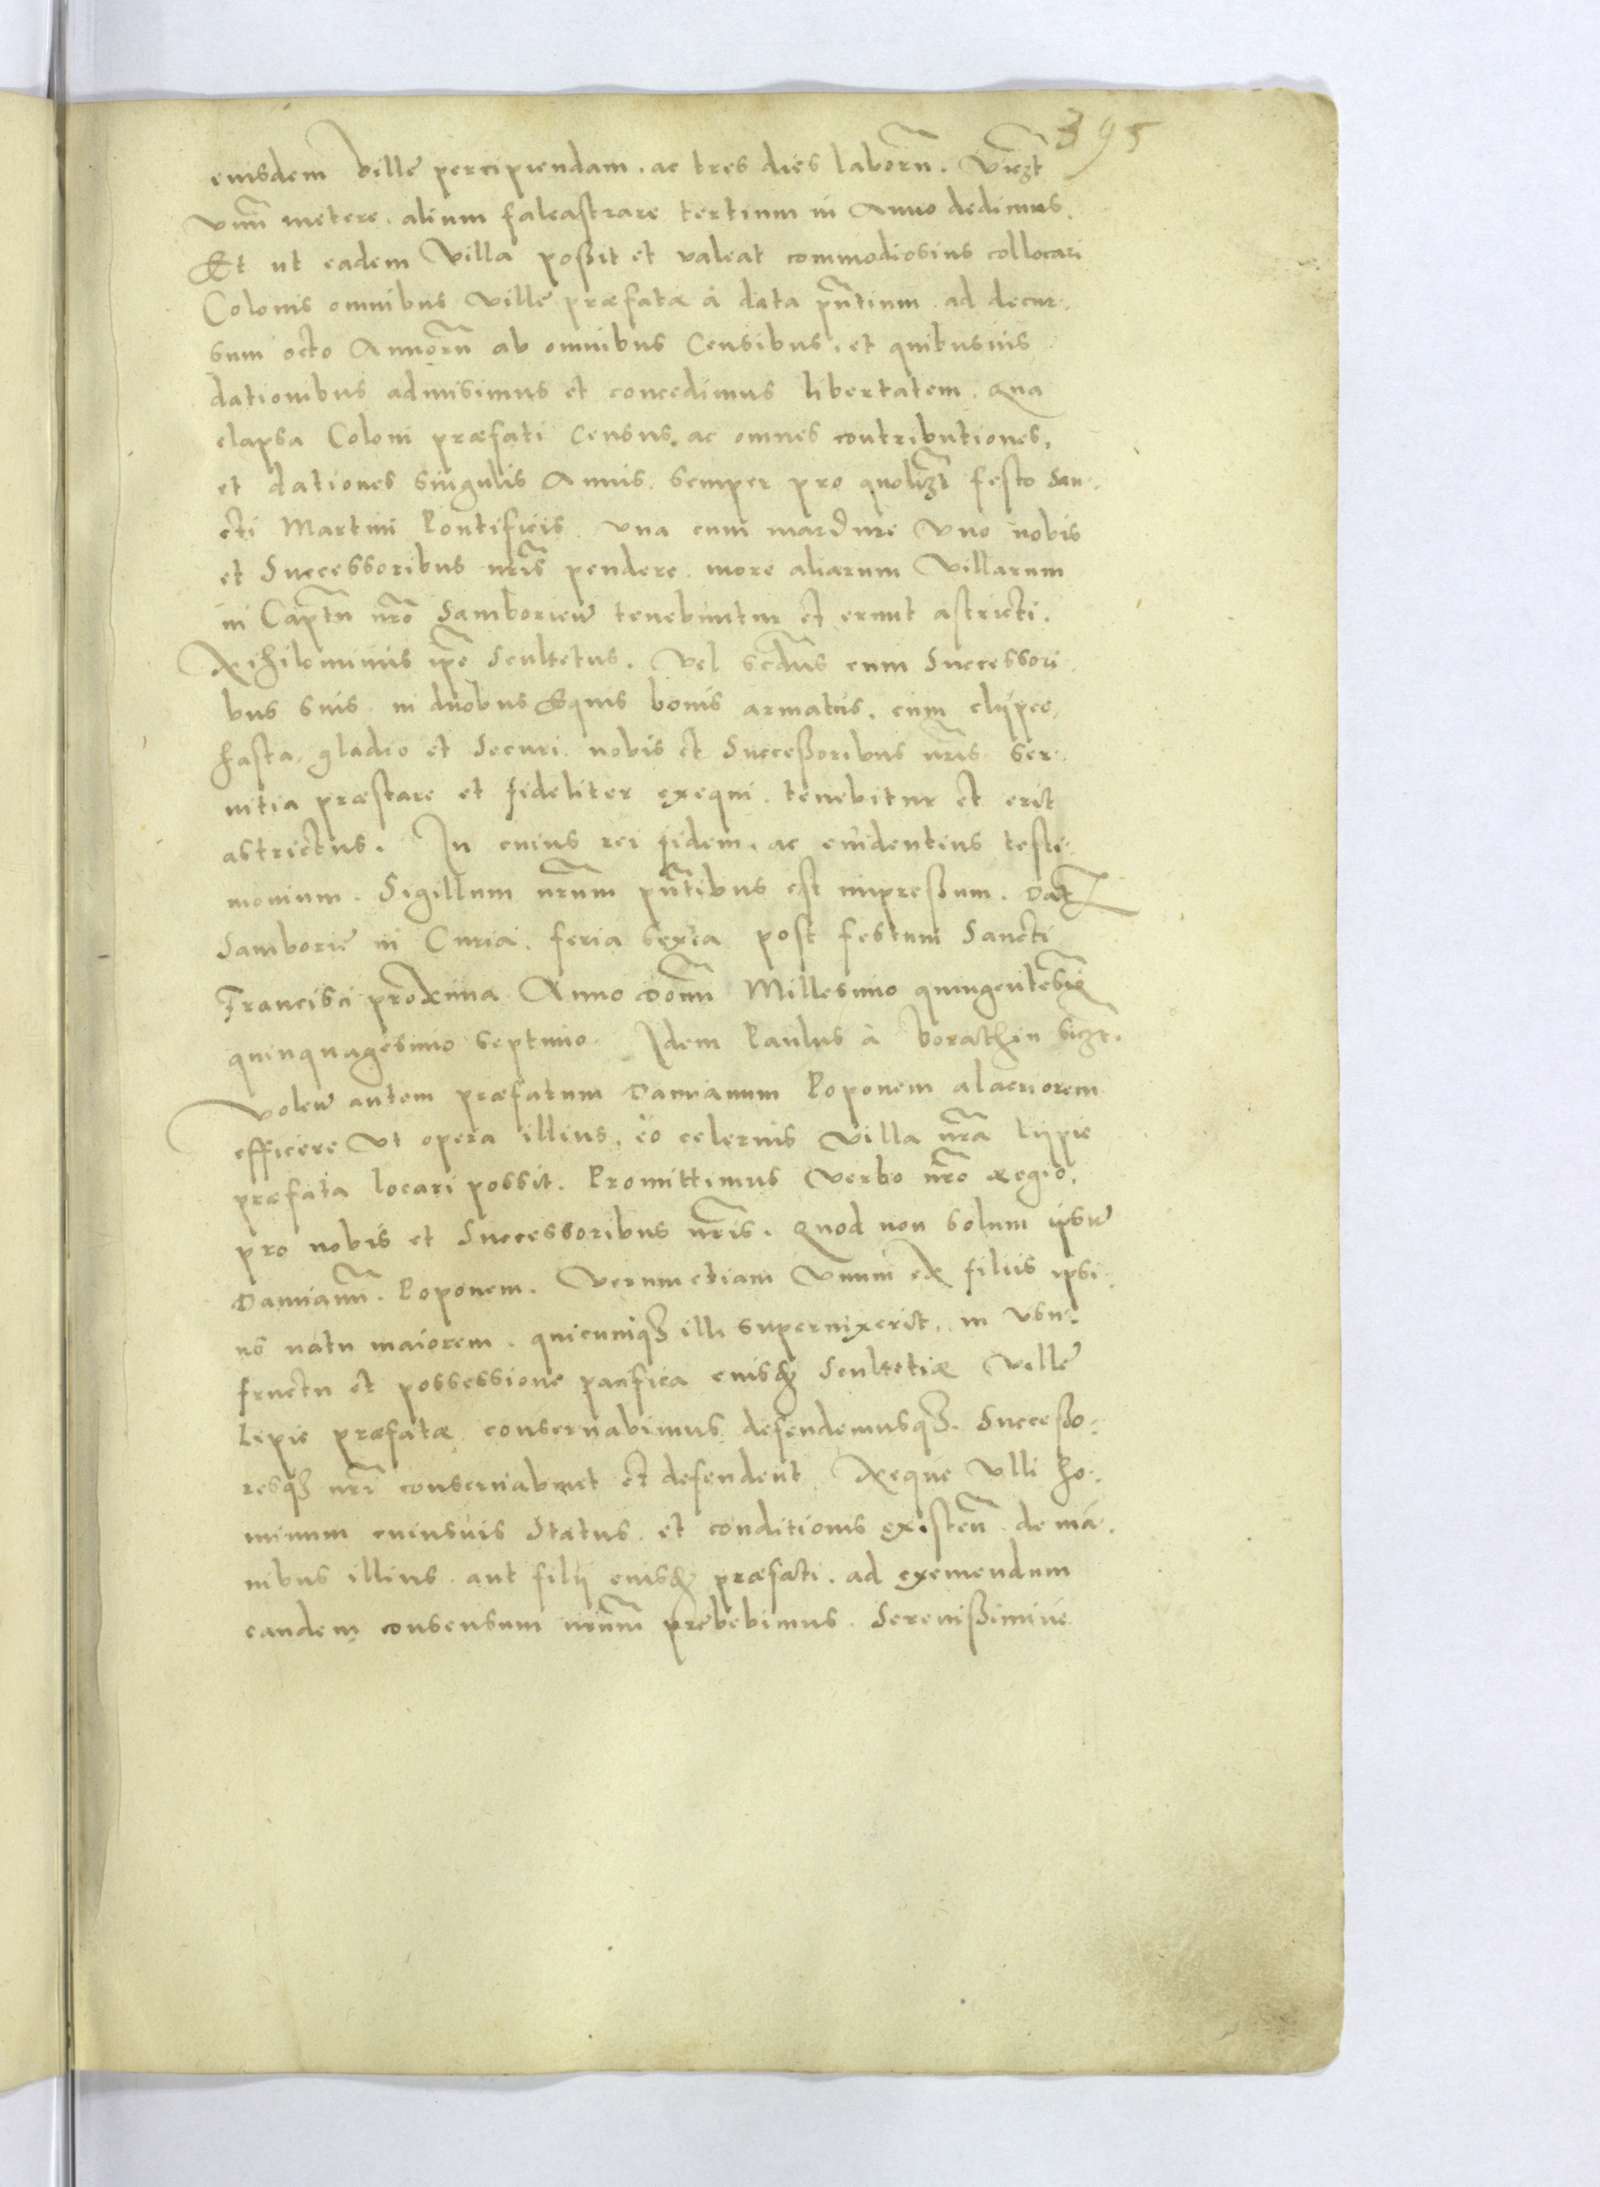 395
eiusdem Ville percipiendam. ac tres dies laborũ. Viczt
vnũ metere. alium falcastrare tertium in Anno dedimus.
Et ut eadem Villa poßit et valeat commodiosius collocari
Colonis omnibus Ville præfatæ á data pñtium ad decur.
sum octo Annorũ ab omnibus Censibus. et quibusuis
dationibus admisimus et concedimus libertatem. Qua
elapsa Coloni præfati Census. ac omnes contributiones.
et dationes singulis Annis. semper pro quolizt festo San.
cti Martini Pontificis. Vna cum mardure Vno nobis
et Successoribus nr̃is pendere. more aliarum Villarum
in Captũ nr̃o Samborien̄ tenebuntur et erunt astricti.
Nihilominus ip̃e Scultetus. Vel sedũs cum Successori.
bus suis in duobus Equis bonis armatus. cum clypeo.
hasta. gladio et Securi. nobis et Succeßoribus nr̃is ser.
uitia præstare et fideliter exequi. tenebitur et erit
astrictus. In cuius rei fidem. ac euidentius testi.
monium. Sigillum nr̃um pñtibus est impreßum. Dat
Samborie in Curia. feria sexta post festum Sancti
Francisci proxima Anno Domĩ Millesimo quingentesĩo
quinquagesimo septimo. Idem Paulus á borathin siczt.
Volen̄ autem præfatum Damianum Poponem alacriorem
efficere Vt opera illius. eo celerius Villa nr̃a Lypie
præfata locari possit. Promittimus Verbo nr̃o Regio.
pro nobis et Successoribus nr̃is. Quod non solum ipsum
Damianũ. Poponem. Verumetiam Vnum ex filiis ipsi.
us natu maiorem. quicunqȝ illi superuixerit. in Vsu.
fructu et possessione pacifica eiusd Scultetiæ Ville
Lipie præfatæ conseruabimus defendemusqȝ. Succeßo.
resqȝ nr̃i conseruabunt et defendent. Neque Vlli ho.
minum cuiusuis Status. et conditionis existeñ. de ma.
nibus illius. aut filij eiusd præfati. ad exemendum
eandem consensum nr̃um præbebimus. Sereniſsimiue